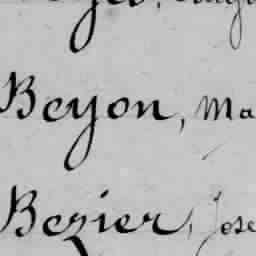 Beyon, Ma
Bezier, Jose